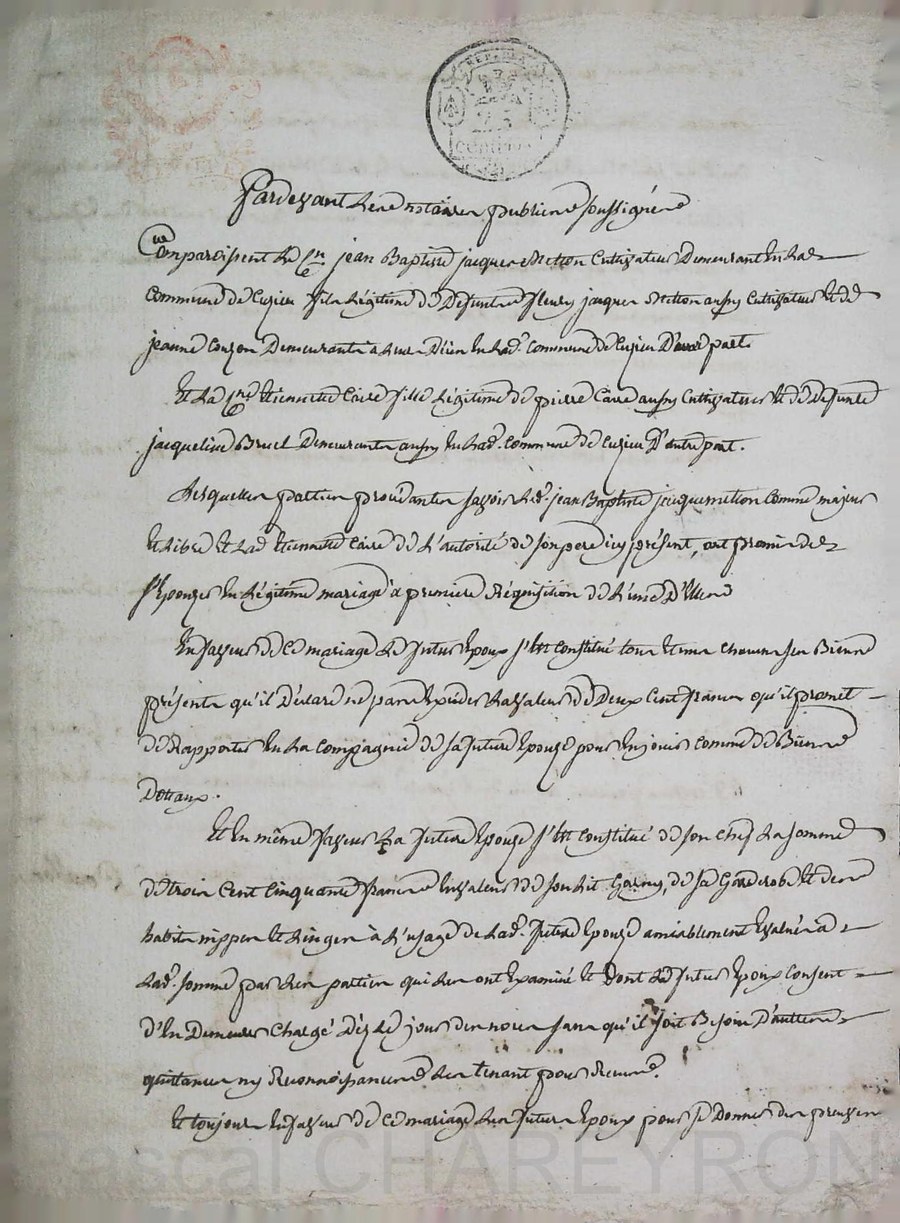 REP. FRA
75
CENTIMES
Pardevant les notaires publics soussignés
Comparoissent le Cen jean Baptiste jacquemetton Cultivateur Demeurant en la
Commune de Cuzieu fils légitime de Defunts fleury jacquemetton aussy Cultivateur et de
jeanne Couzon Demeurants à en lad. commune de Cuzieu D'une part.
Et la Cne Etiennette Caire fille légitime de pierre Caire aussy Cultivateur et de Defunte
jacqueline Bruel Demeurants aussy en lad. Commune de Cuzieu D'autre part.
Lesquelles parties procédantes savoir led. jean Baptiste jacquemetton Comme majeur
et libre et lad. Etiennette Caire de l'autorité de son pere icy présent, ont promis de
s'Epouser en légitime mariage à premiere Réquisition de l'une D'Elles
En faveur de ce mariage le futur Epoux s'est Constitué tous et uns chacuns ses Biens
présents qu'il Déclare ne pas Excéder la valeur de Deux Cent francs qu'il promet
de Rapporter en la compagnie de sa future Epouse pour en jouir comme de Biens
Dotaux.
Et en même faveur la future Epouse s'est Constitué de son chef la somme
de trois Cent Cinquante francs en valeur de son lit Garny, de sa Garderobe et de ses
habits nippes et linges à l'usage de lad. future Epouse amiablement Evalués à
lad. somme par les parties qui les ont Examiné et Dont led. futur Epoux Consent
d'En Demeurer Chargé Dès le jour des noces sans qu'il soit Besoin D'autres
quittances ny Reconnoissances les tenant pour Reçues.
Et toujours En faveur de ce mariage les futurs Epoux pour se Donner des preuves
Pascal CHAREYRON